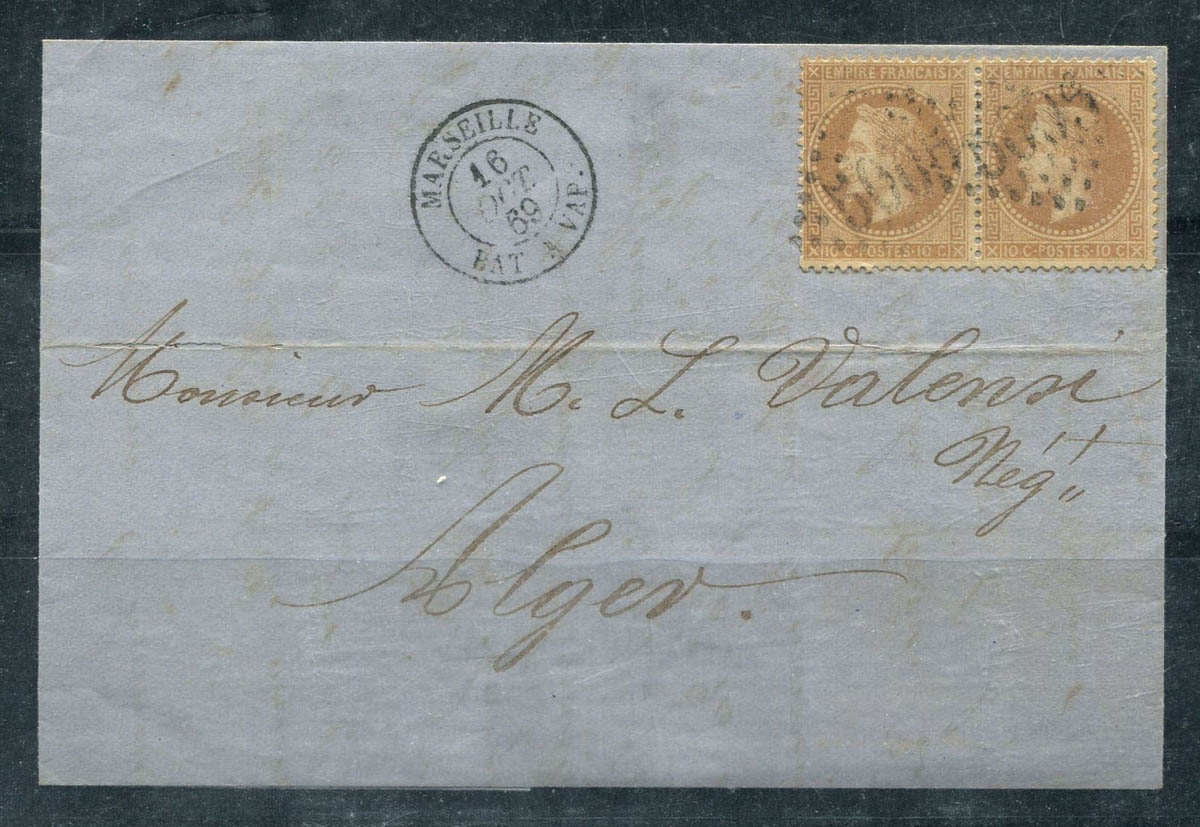 EMPIRE FRANCAIS EMPIRE FRANCAIS
10 C·POSTES·10 C 10 C·POSTES·10 C
MARSEILLE
16
OCT.
69
BAT A VAP.
Monsieur M. L. Valensi
Négt
Alger.